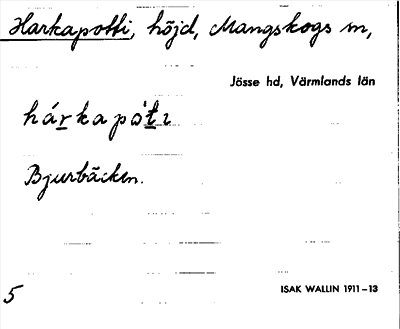 Harkapotti, höjd, Mangskogs sn,
Jösse hd, Värmlands län
hárkapòtı
Bjurbäcken.
5
ISAK WALLIN 1911–13